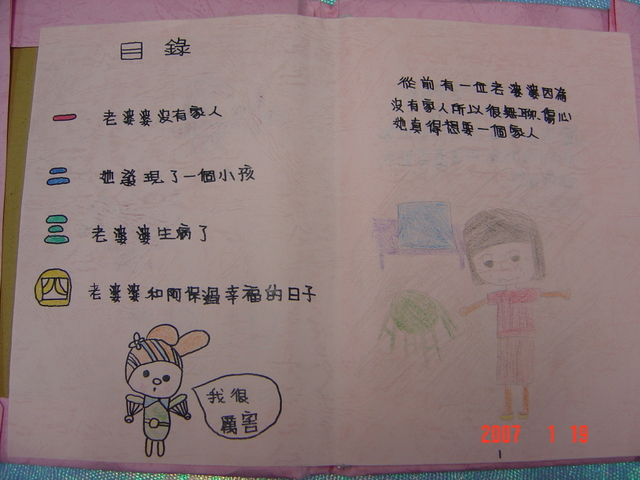 目錄
一 老婆婆沒有家人
二 她發現了一個小孩
三 老婆婆生病了
四 老婆婆和阿保過幸福的日子
我很
厲害
從前有一位老婆婆因為
沒有家人所以很無聊、傷心
她真得想要一個家人
2007 1 19
1